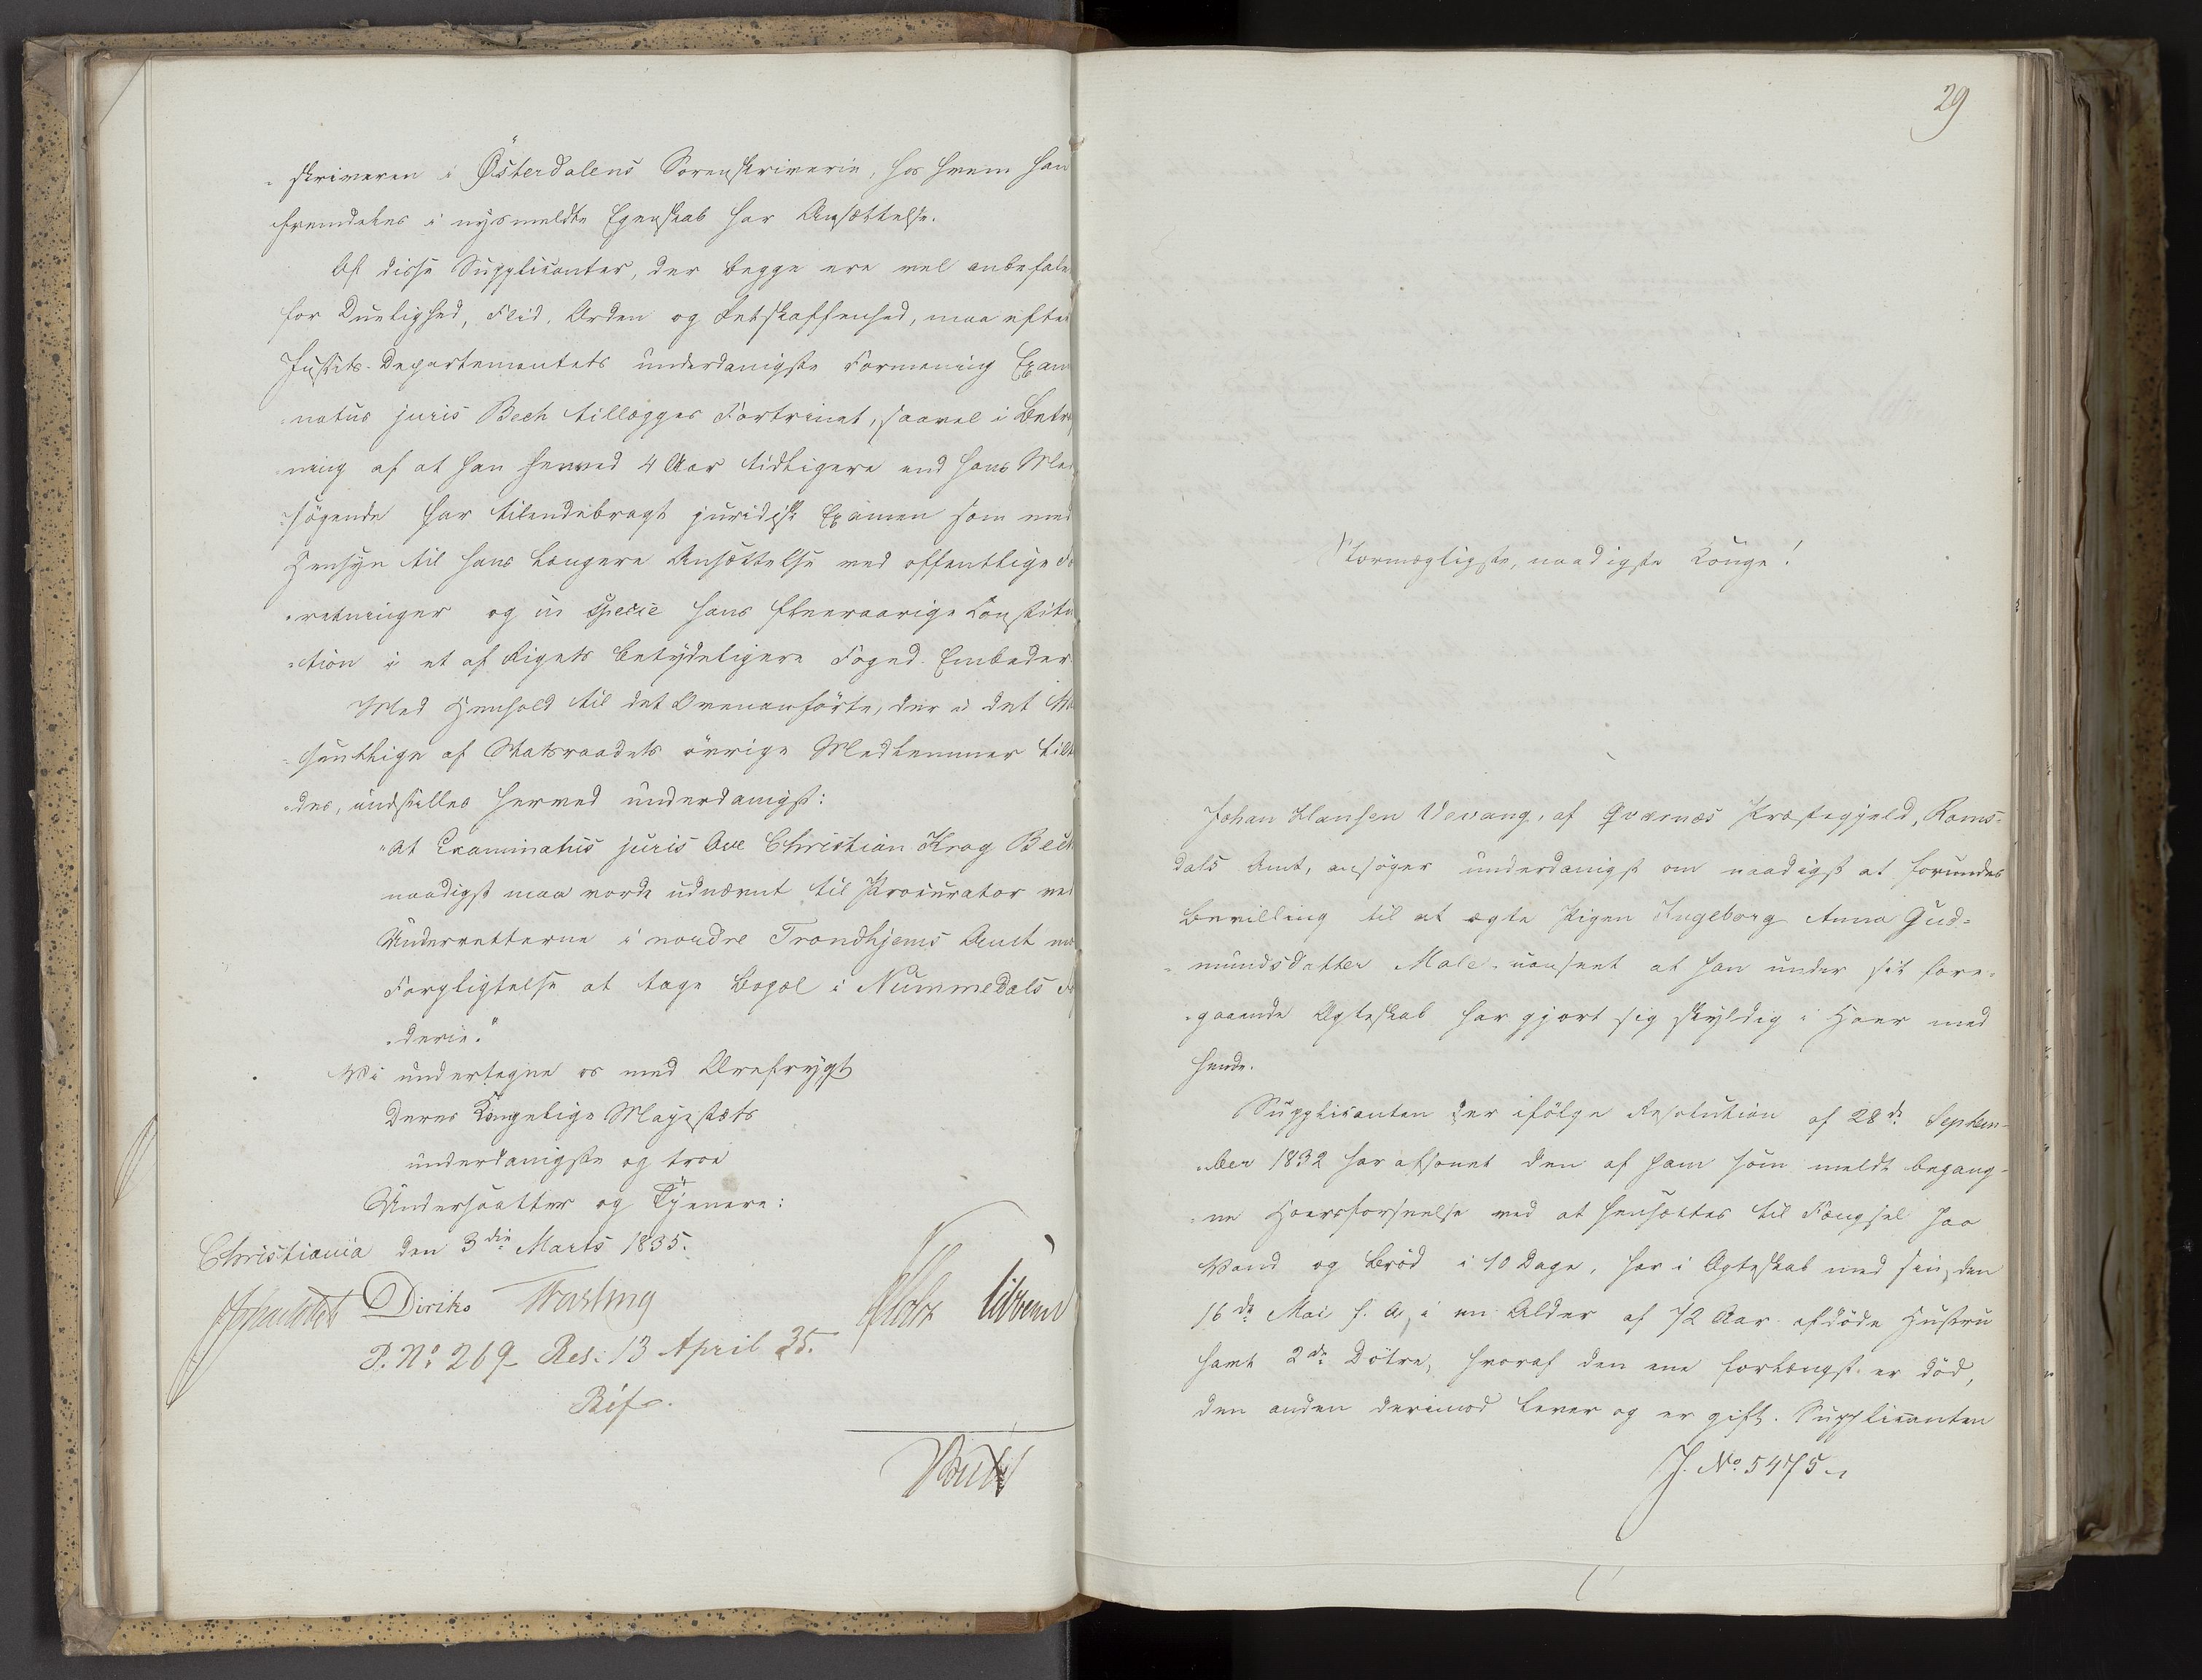 -skriveren i Østerdalens Sorenskriverie, hos hvem han
fremdeles i nysmeldte Egenskab har Ansættelse.
Af disse Supplicanter, der begge ere vel anbefale
for Duelighed, Flid, Orden og Retskaffenhed, maa efter
Justits-Departementets underdanigste Formening Exam
-natus juris Bech tillægges Fortrinet, saavel i Betra
-ning af at han henved 4 Aar tidligere end hans Med
-søgende har tilendebragt juridisk Examen som med
Hensyn til hans længere Ansættelse ved offentlige Fo
-retninger og in specie hans fleeraarige Constitu
-tion i et af Rigets betydeligere Foged-Embeder.
Med Henhold til det Ovenanførte, der i det
-sentlige af Statsraadets øvrige Medlemmer tilt
-des, indstilles herved underdanigst:
"At Examinatus juris Ove Christian Krag Bech
naadigst maa vorde udnævnt til Procurator ved
Underretterne i nordre Trondhjems Amt
Forpligtelse at tage Bopæl i Nummedals Fo
-derie."
Vi undertegne os med Ærefrygt
Deres Kongelige Majestæts
underdanigste og troe
Undersaatter og Tjenere:
Christiania den 3die Marts 1835.
Diriks Fasting
P. No 269 Res: 13 April 35.
Bif.
29
Stormægtigste, naadigste Konge!
Johan Hansen Vevang, af Qværnæs Præstegjeld, Roms-
dals Amt, ansøger underdanigst om naadigst at forundes
Bevilling til at ægte Pigen Ingeborg Anna Gud-
-mundsdatter Male, uanseet at han under sit fore-
-gaaende Ægteskab har gjort sig skyldig i Hoer med
hende.
Supplicanten der ifølge Resolution af 28de Septem-
-ber 1832 har afsonet den af ham som meldt begang-
-ne Hoersforseelse ved at hensættes til Fængsel paa
Vand og Brød i 10 Dage, har i Ægteskab med sin, den
16de Mai f. A, i en Alder af 72 Aar afdøde Hustru
havt 2de Døtre, hvoraf den ene forlængst er død,
den anden derimod lever og er gift. Supplicanten
J. No 5475